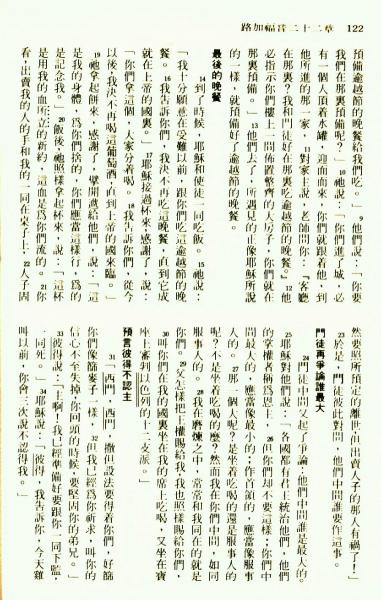 路加福音二十二章 122
預備逾越節的晚餐給我們吃。」 9他們說:「你要
我們在那裏預備呢?」 10祂說:「你們進了城,必
有一個人頂着水罐,迎面而來,你們就跟着他,到
他所進的那家, 11對家主說,老師問你:『客廳
在那裏?我和門徒好在那裏吃逾越節的晚餐。』 12他
必指示你們樓上一間佈置整齊的大房子,你們就在
那裏預備。」 13他們去了,所遇見的正像耶穌所說
的一樣,就預備好了逾越節的晚餐。
最後的晚餐
14到了時候,耶穌和使徒一同吃飯。 15祂說:
「我十分願意在受難以前,跟你們吃這逾越節的晚
餐。 16我告訴你們,我決不再吃這晚餐,直到它成
就在上帝的國裏。」 17耶穌接過杯來,感謝了,說:
「你們拿這個,大家分着喝。 18我告訴你們,從今
以後,我決不再喝這葡萄酒,直到上帝的國來臨。」
19祂拿起餅來,感謝了,擘開遞給他們,說:「這
是我的身體,爲你們捨的,你們應當這樣行,爲的
是記念我。」 20飯後,祂照樣拿起杯來,說:「這杯
是用我的血所立的新約,這血是爲你們流的。 21你
看,出賣我的人的手和我的一同在桌子上, 22人子固
然要照所預定的離世,但出賣人子的那人有禍了!」
23於是,門徒彼此對問,他們中間誰要作這事。
門徒再爭論誰最大
24門徒中間又起了爭論,他們中間誰是最大的。
25耶穌對他們說:「各國都有君王統治他們,他們
的掌權者稱爲恩主, 26但你們却不要這樣;你們中
間最大的,應當像最小的,作首領的,應當像服事
人的。 27那一個大呢?是坐着吃喝的還是服事人的
呢?不是坐着吃喝的麼?然而我在你們中間,如同
服事人的。 28我在磨煉之中,常常和我同在的就是
你們。 29父怎樣把王權賜給我,我也照樣賜給你們,
30叫你們在我的國裏坐在我的席上吃喝,又坐在寶
座上審判以色列的十二支派。
預言彼得不認主
31「西門,西門,撒但設法要得着你們,好篩
你們像篩麥子一樣, 32但我已經爲你祈求,叫你的
信心不至失掉,你回頭的時候,要堅固你的弟兄。」
33彼得說:「主啊,我已經準備好要跟你一同下監,
一同死。」 34耶穌說:「彼得,我告訴你,今天雞
叫以前,你會三次說不認得我。」